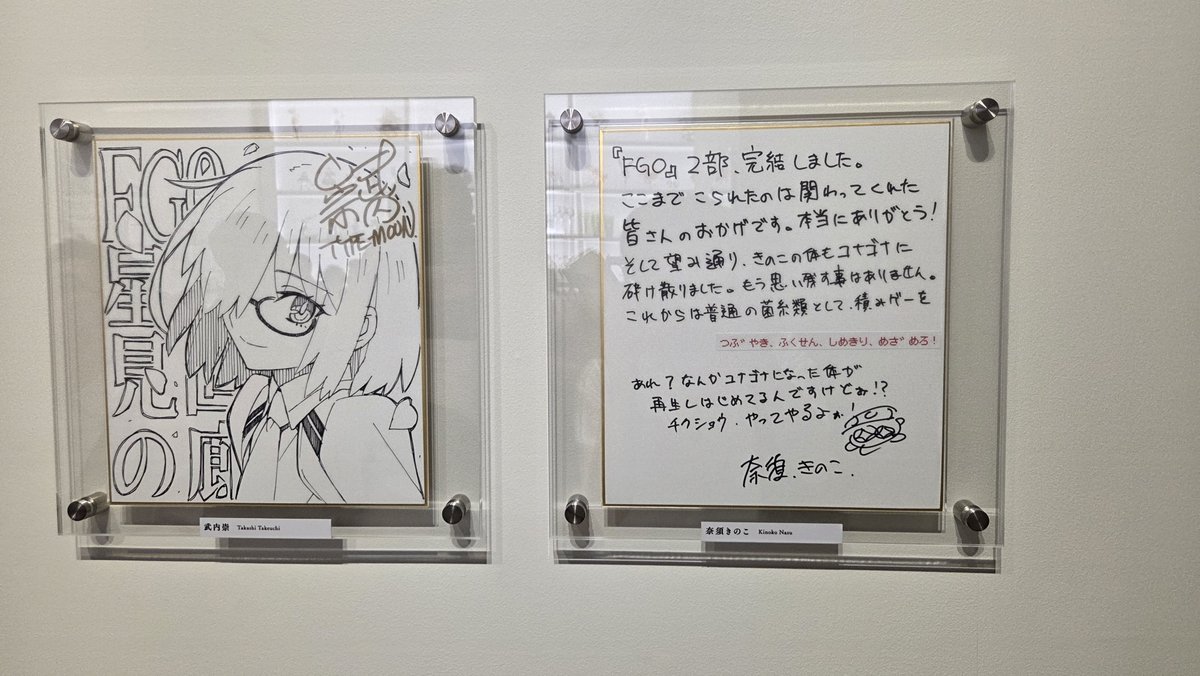 FGO
星見の
回廊
崇
TYPE-MOON
武内崇 Takashi Takeuchi
『FGO』2部、完結しました。
ここまでこられたのは関わってくれた
皆さんのおかげです。本当にありがとう!
そして望み通り、きのこの体もコナゴナに
砕け散りました。もう思い残す事はありません。
これからは普通の菌糸類として、積みゲーを
つぶやき、ふくせん、しめきり、めざめろ!
あれ?なんかコナゴナになった体が
再生しはじめてるんですけどぉ!?
チクショウ、やってやるよぉ!
奈須きのこ
奈須きのこ Kinoko Nasu